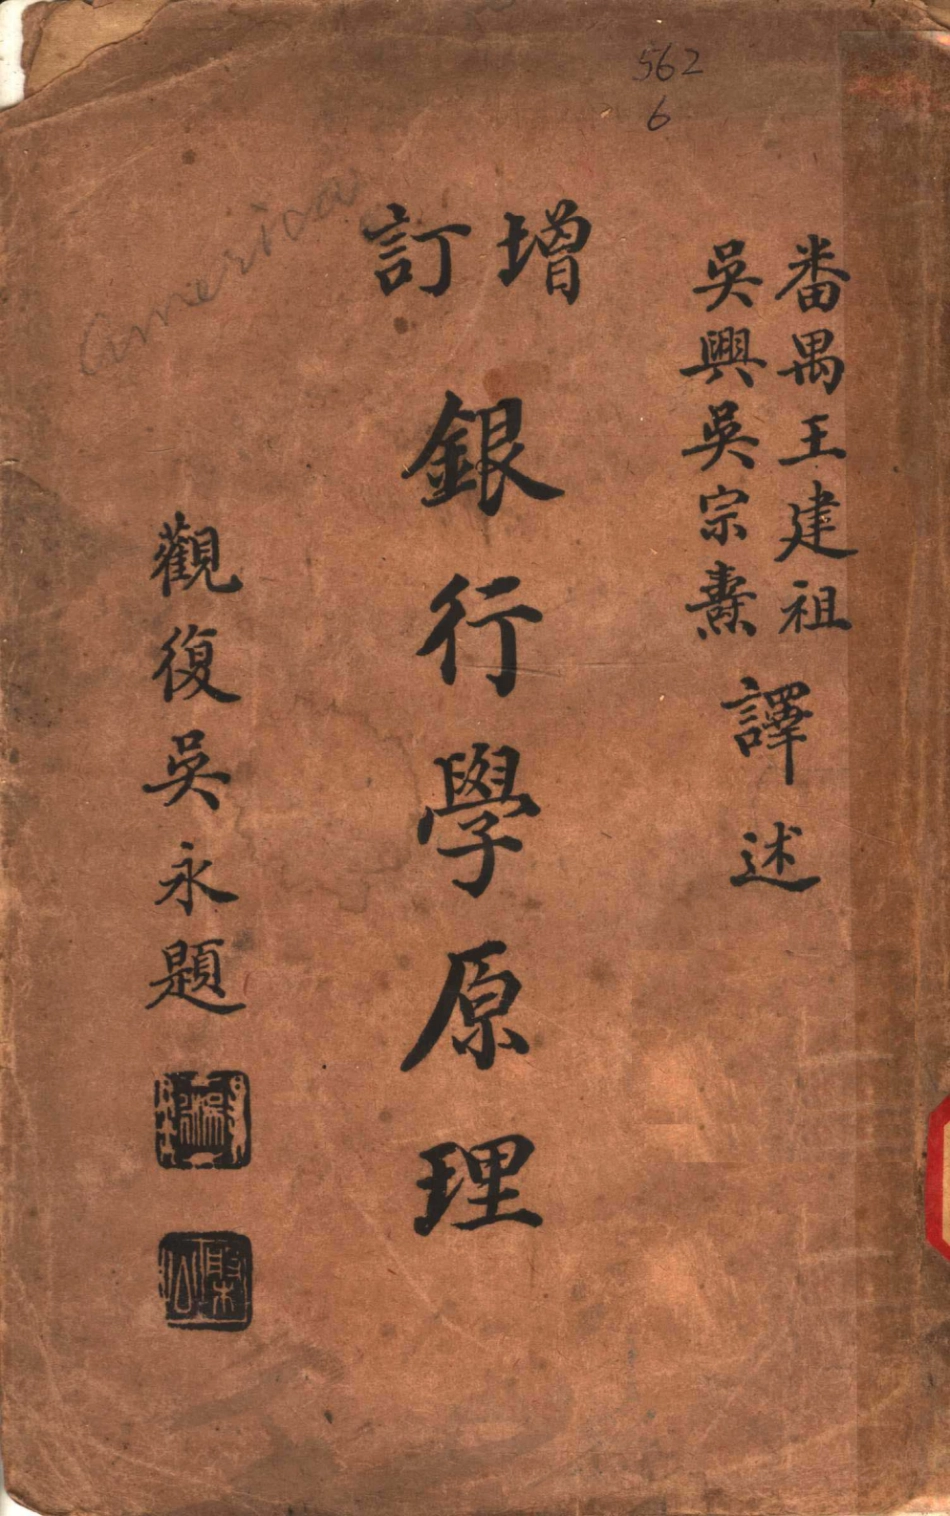 562
6
番禺王建祖
吳興吳宗燾
譯述
增訂
銀行學原理
觀復吳永題
America